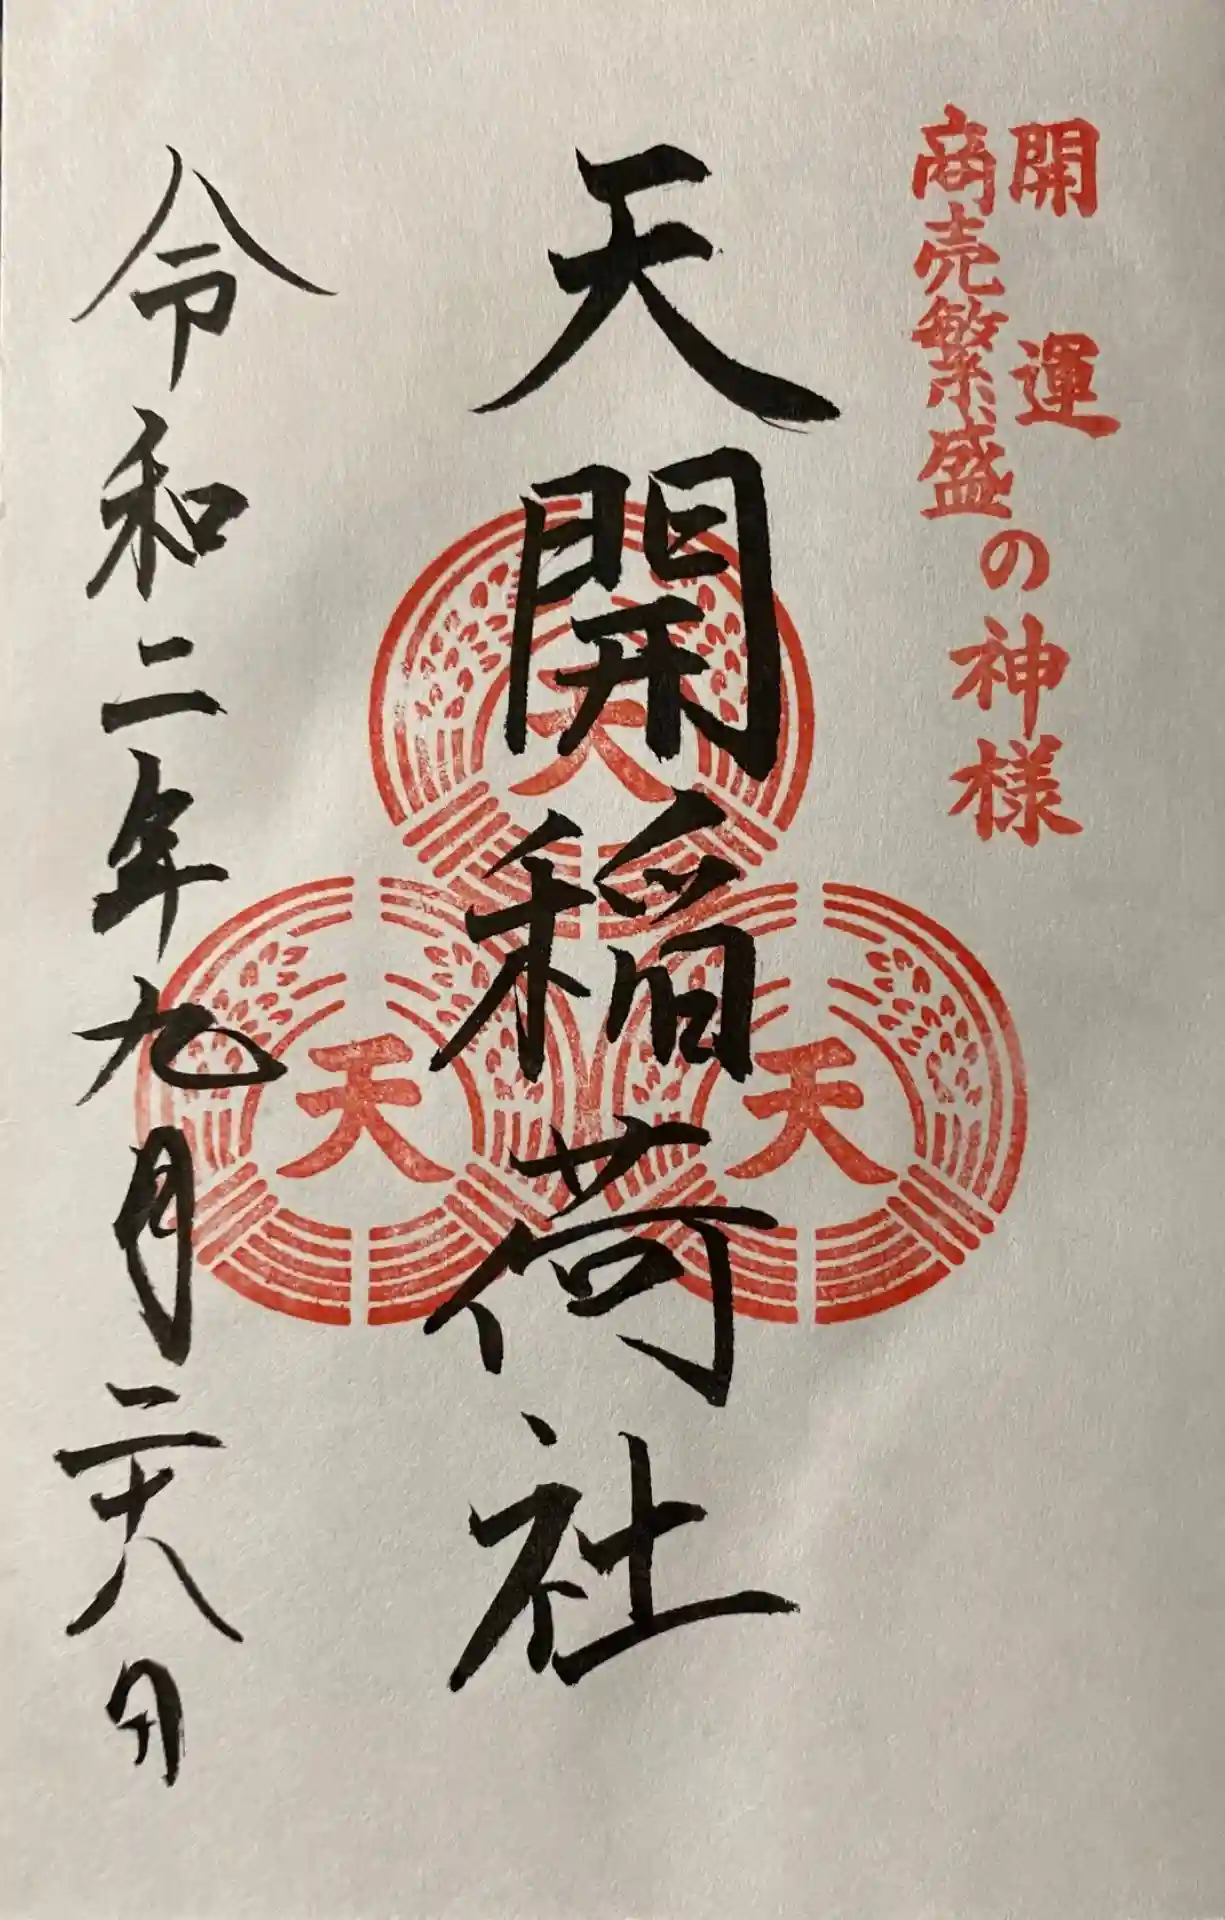 開運
商売繁盛
の神様
天開稲荷社
天
天
天
令和二年九月二十八日